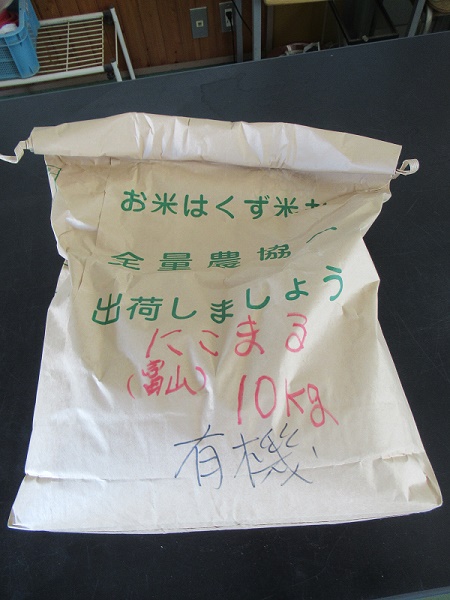 お米はくず米
全量農協
出荷しましょう
にこまる
(富山) 10kg
有機